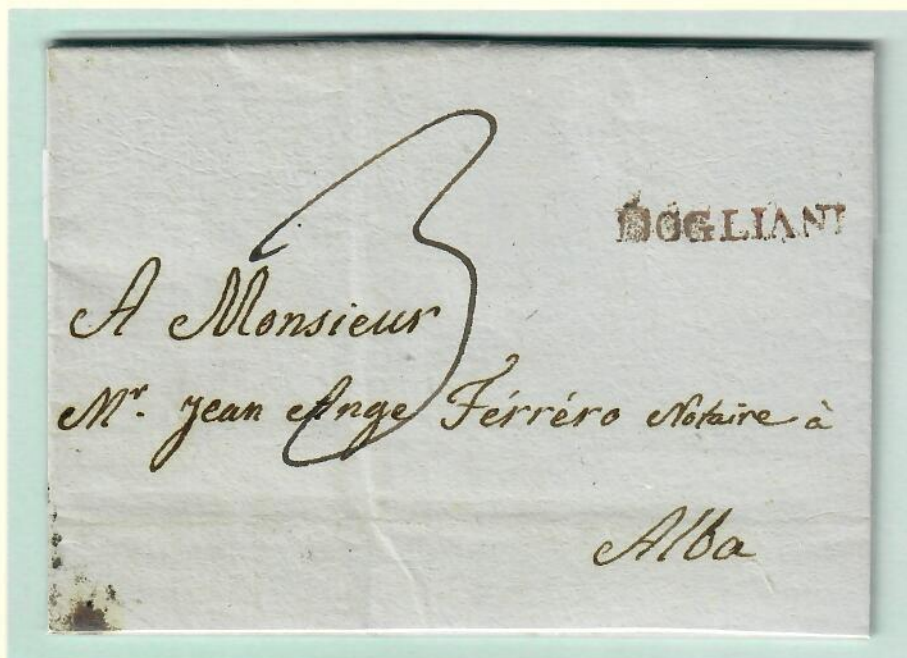 3
DOGLIANI
A Monsieur
Mr. Jean Ange Férréro Notaire à
Alba